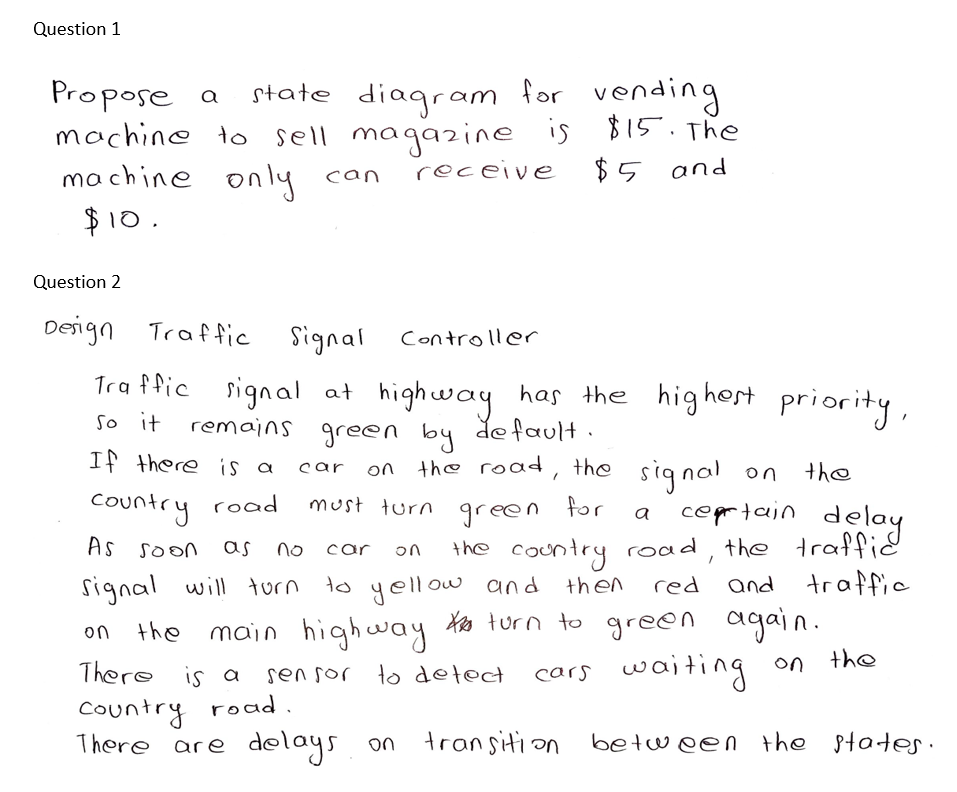 Question 1
Propose a state diagram for vending
machine to sell magazine is $15. The
machine only can receive $5 and
$10.
Question 2
Design Traffic Signal Controller
Traffic signal at highway has the highest priority,
so it remains green by default.
If there is a car on the road, the signal on the
country road must turn green for a certain delay
As soon as no car on the country road, the traffic
signal will turn to yellow and then red and traffic
on the main highway turn to green again.
There is a sensor to detect cars waiting on the
country road.
There are delays on transition between the states.